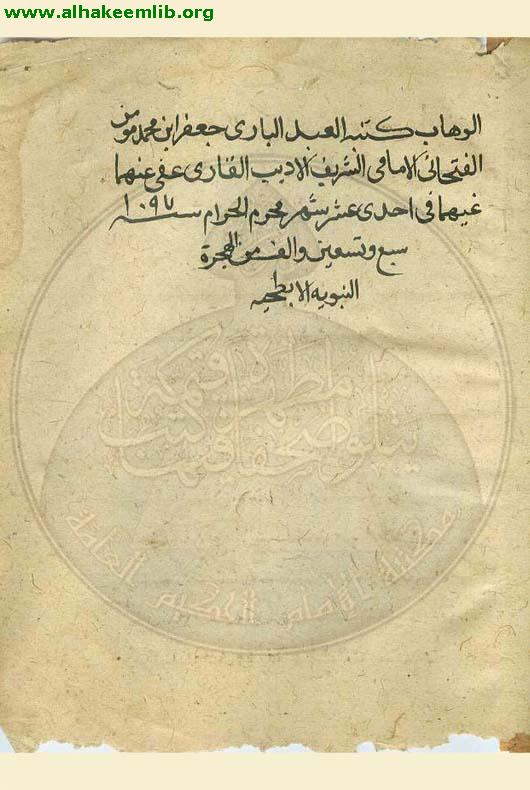 www.alhakeemlib.org
الوهاب كتبه العبد البارى جعفر ابن محمد مومن
الفتحانى الامامى الشريف الاديب القارى عفى عنهما
فى احدى عشر شهر محرم الحرام سنه ١٠٩٧
سبع وتسعين والف من الهجرة
النبويه الابطحيه
مكتبة الإمام الحكيم العامة